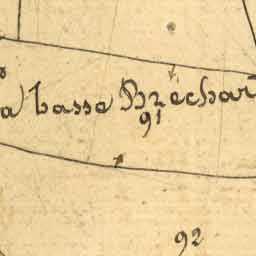 a basse Bréchar
91
92